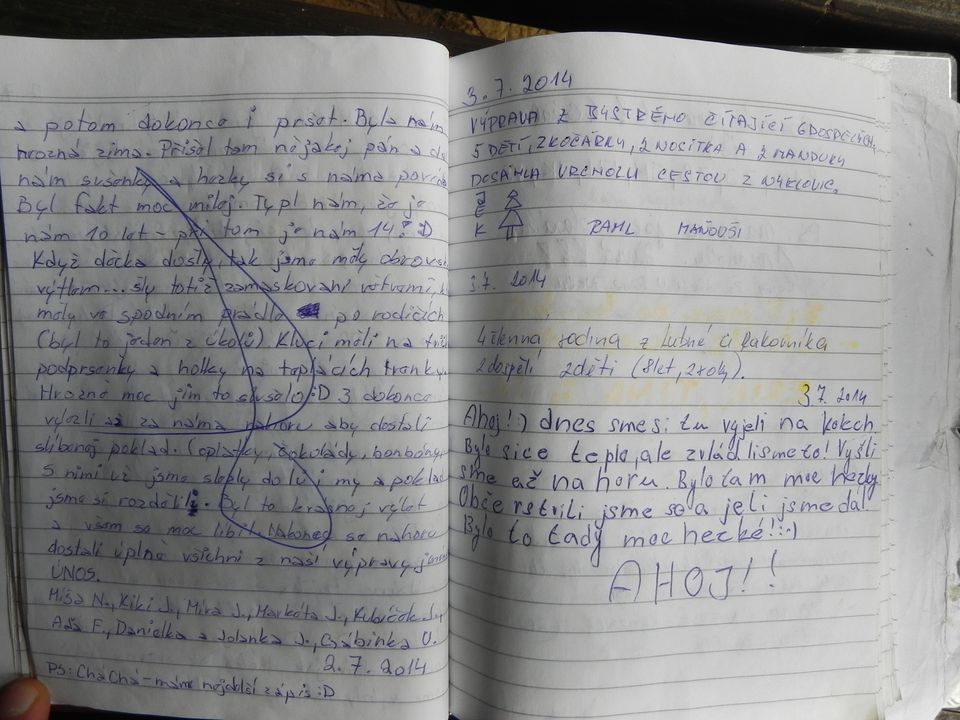 a potom dokonce i pršet. Byla nám
hrozná zima. Přišel tam nějakej pán a dal
nám sušenky a hezky si s náma
Byl fakt moc milej. Typl nám, že je
nám 10 let - při tom je nám 14! :D
Když děcka došly, tak jsme měly
výtlem... šly totiž zamaskovaní větvemi,
měly ve spodním prádle po rodičích
(byl to jeden z úkolů). Kluci měli na
podprsenky a holky na teplácích trenky.
Hrozně moc jim to slušelo :D 3 dokonce
vylezli až za náma nahoru aby dostali
slíbenej poklad. (oplatky, čokolády, bonbóny,
S nimi už jsme slezly dolu i my a poklad
jsme si rozdělili. Byl to krásnej výlet
a všem se moc líbil. Nakonec se nahoru
dostali úplně všichni z naší výpravy,
ÚNOS.
Míša N., Kiki J., Mira J., Markéta J., Kubíček J.,
F., Danielka a Jolanka J., Csábinka U.
2.7.2014
PS: Chá Chá - máme nejdelší zápis :D
3.7.2014
VÝPRAVA Z BYSTRÉHO ČÍTAJÍCÍ 6 DOSPĚLÝCH,
5 DĚTÍ, 2 KOČÁRKY, 2 NOSÍTKA A 2 MANDUKY
DOSÁHLA VRCHOLU CESTOU Z NYKLOVIC.
3.7. 2014
4členná rodina z Lubné či Rakovníka
2 dospělí 2 děti (8let, 2roky).
3.7. 2014
Ahoj!:) dnes sme si tu vyjeli na kolech
Bylo sice teplo, ale zvládli sme to! Vyšli
sme až na horu. Bylo tam moc hezky
Občerstvili jsme se a jeli jsme dál!
Bylo to tady moc hezké!!:-)
AHOJ!!